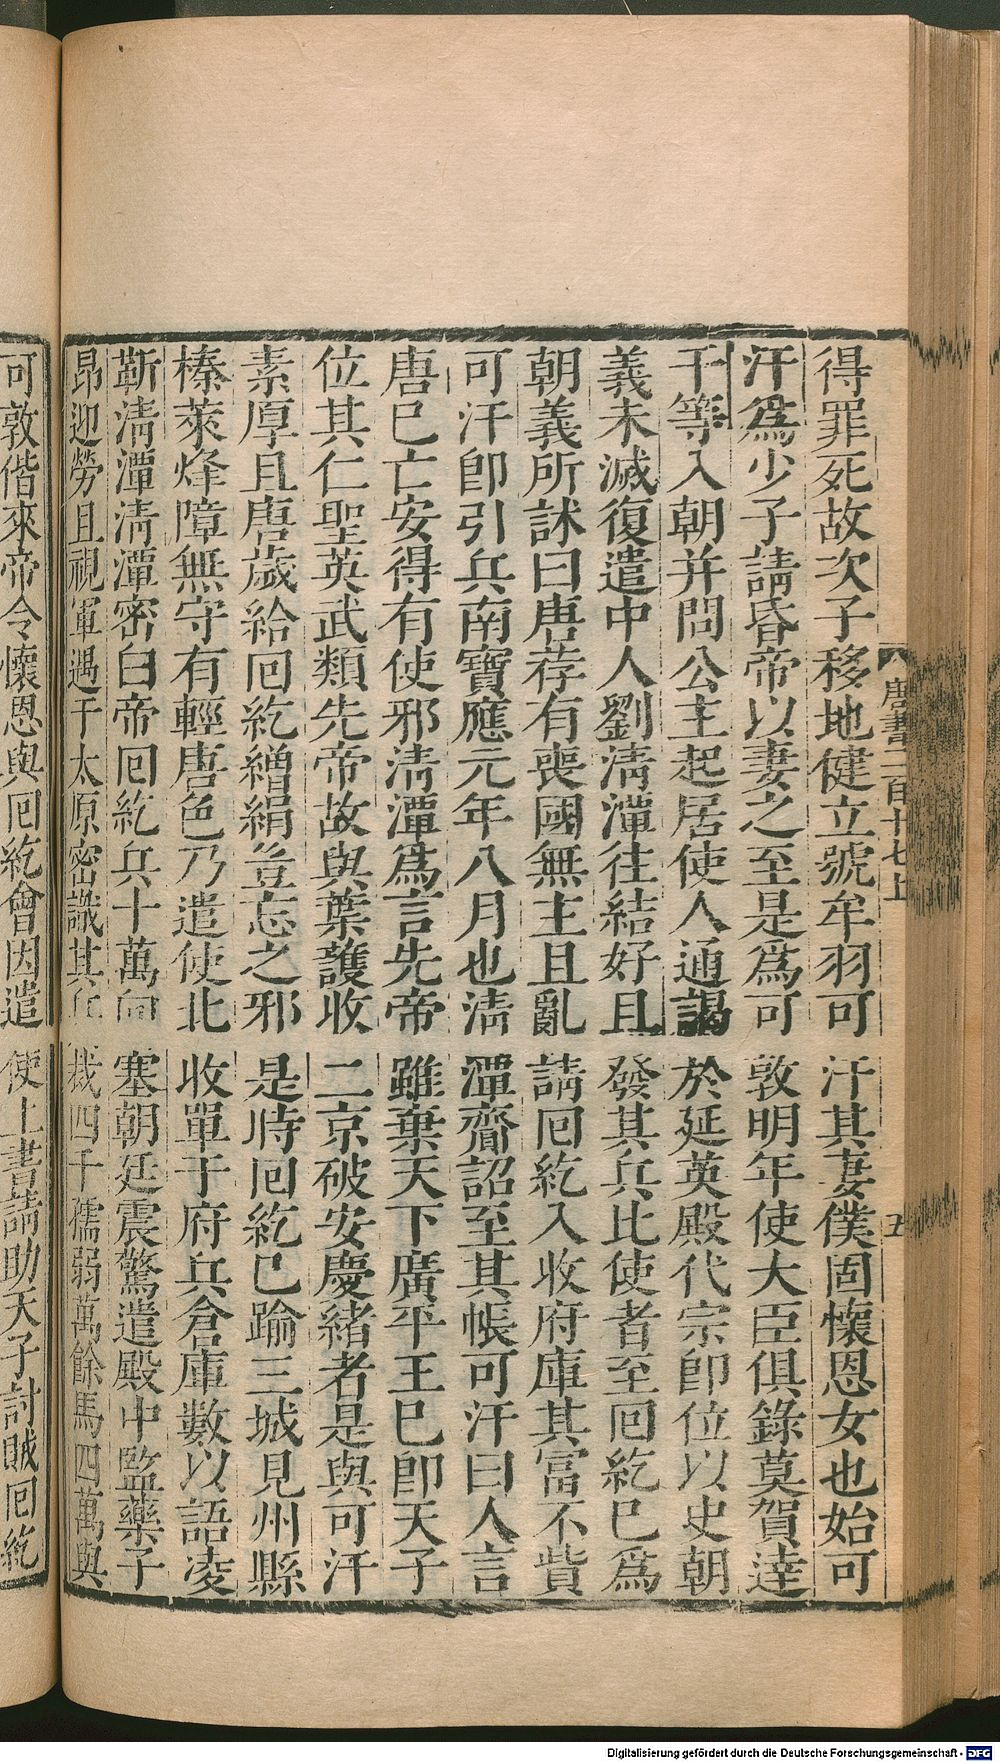 唐書二百十七上
五
得罪死故次子移地健立號牟羽可汗其妻僕固懷恩女也始可
汗爲少子請昏帝以妻之至是爲可敦明年使大臣俱錄莫賀達
干等入朝并問公主起居使人通謁於延英殿代宗卽位以史朝
義未滅復遣中人劉淸潭往結好且發其兵比使者至回紇已爲
朝義所訹曰唐荐有喪國無主且亂請回紇入收府庫其富不貲
可汗卽引兵南寶應元年八月也淸潭齎詔至其帳可汗曰人言
唐已亡安得有使邪淸潭爲言先帝雖棄天下廣平王已卽天子
位其仁聖英武類先帝故與葉護收二京破安慶緖者是與可汗
素厚且唐歲給回紇繒絹豈忘之邪是時回紇已踰三城見州縣
榛萊烽障無守有輕唐色乃遣使北收單于府兵倉庫數以語凌
靳淸潭淸潭密白帝回紇兵十萬向塞朝廷震驚遣殿中監藥子
昂迎勞且視軍遇于太原密識其兵裁四千孺弱萬餘馬四萬與
可敦偕來帝令懷恩與回紇會因遣使上書請助天子討賊回紇
Digitalisierung gefördert durch die Deutsche Forschungsgemeinschaft - DFG